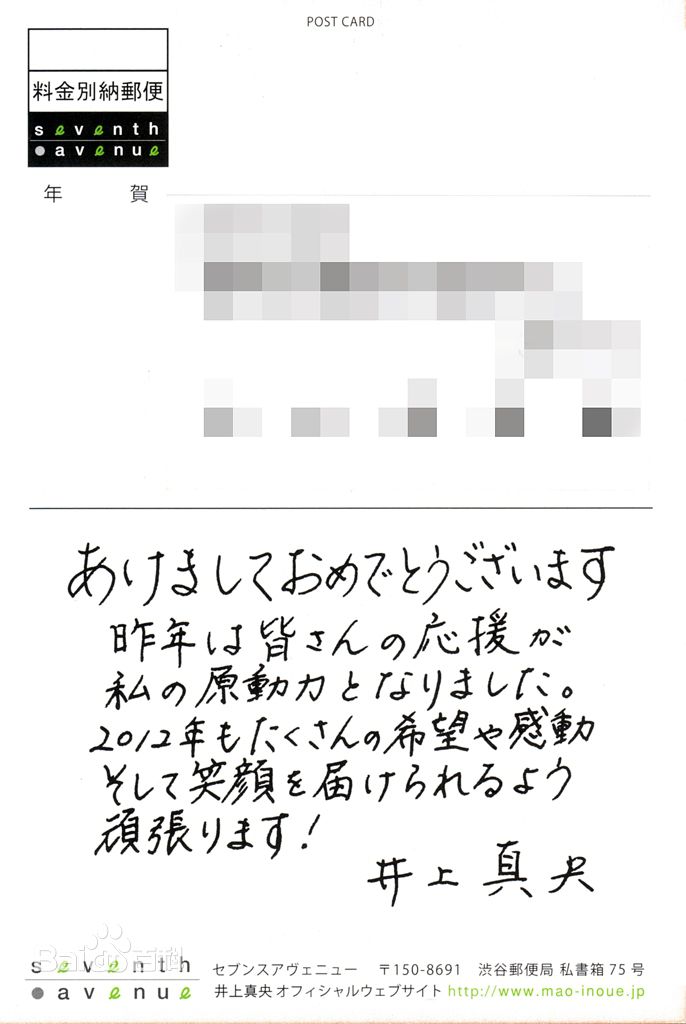 POST CARD
料金別納郵便
seventh
avenue
年 賀
あけましておめでとうございます
昨年は皆さんの応援が
私の原動力となりました。
2012年もたくさんの希望や感動
そして笑顔を届けられるよう
頑張ります!
井上真央
Baidu百科
seventh
avenue
セブンスアヴェニュー 〒150-8691 渋谷郵便局 私書箱 75 号
井上真央 オフィシャルウェブサイト http://www.mao-inoue.jp